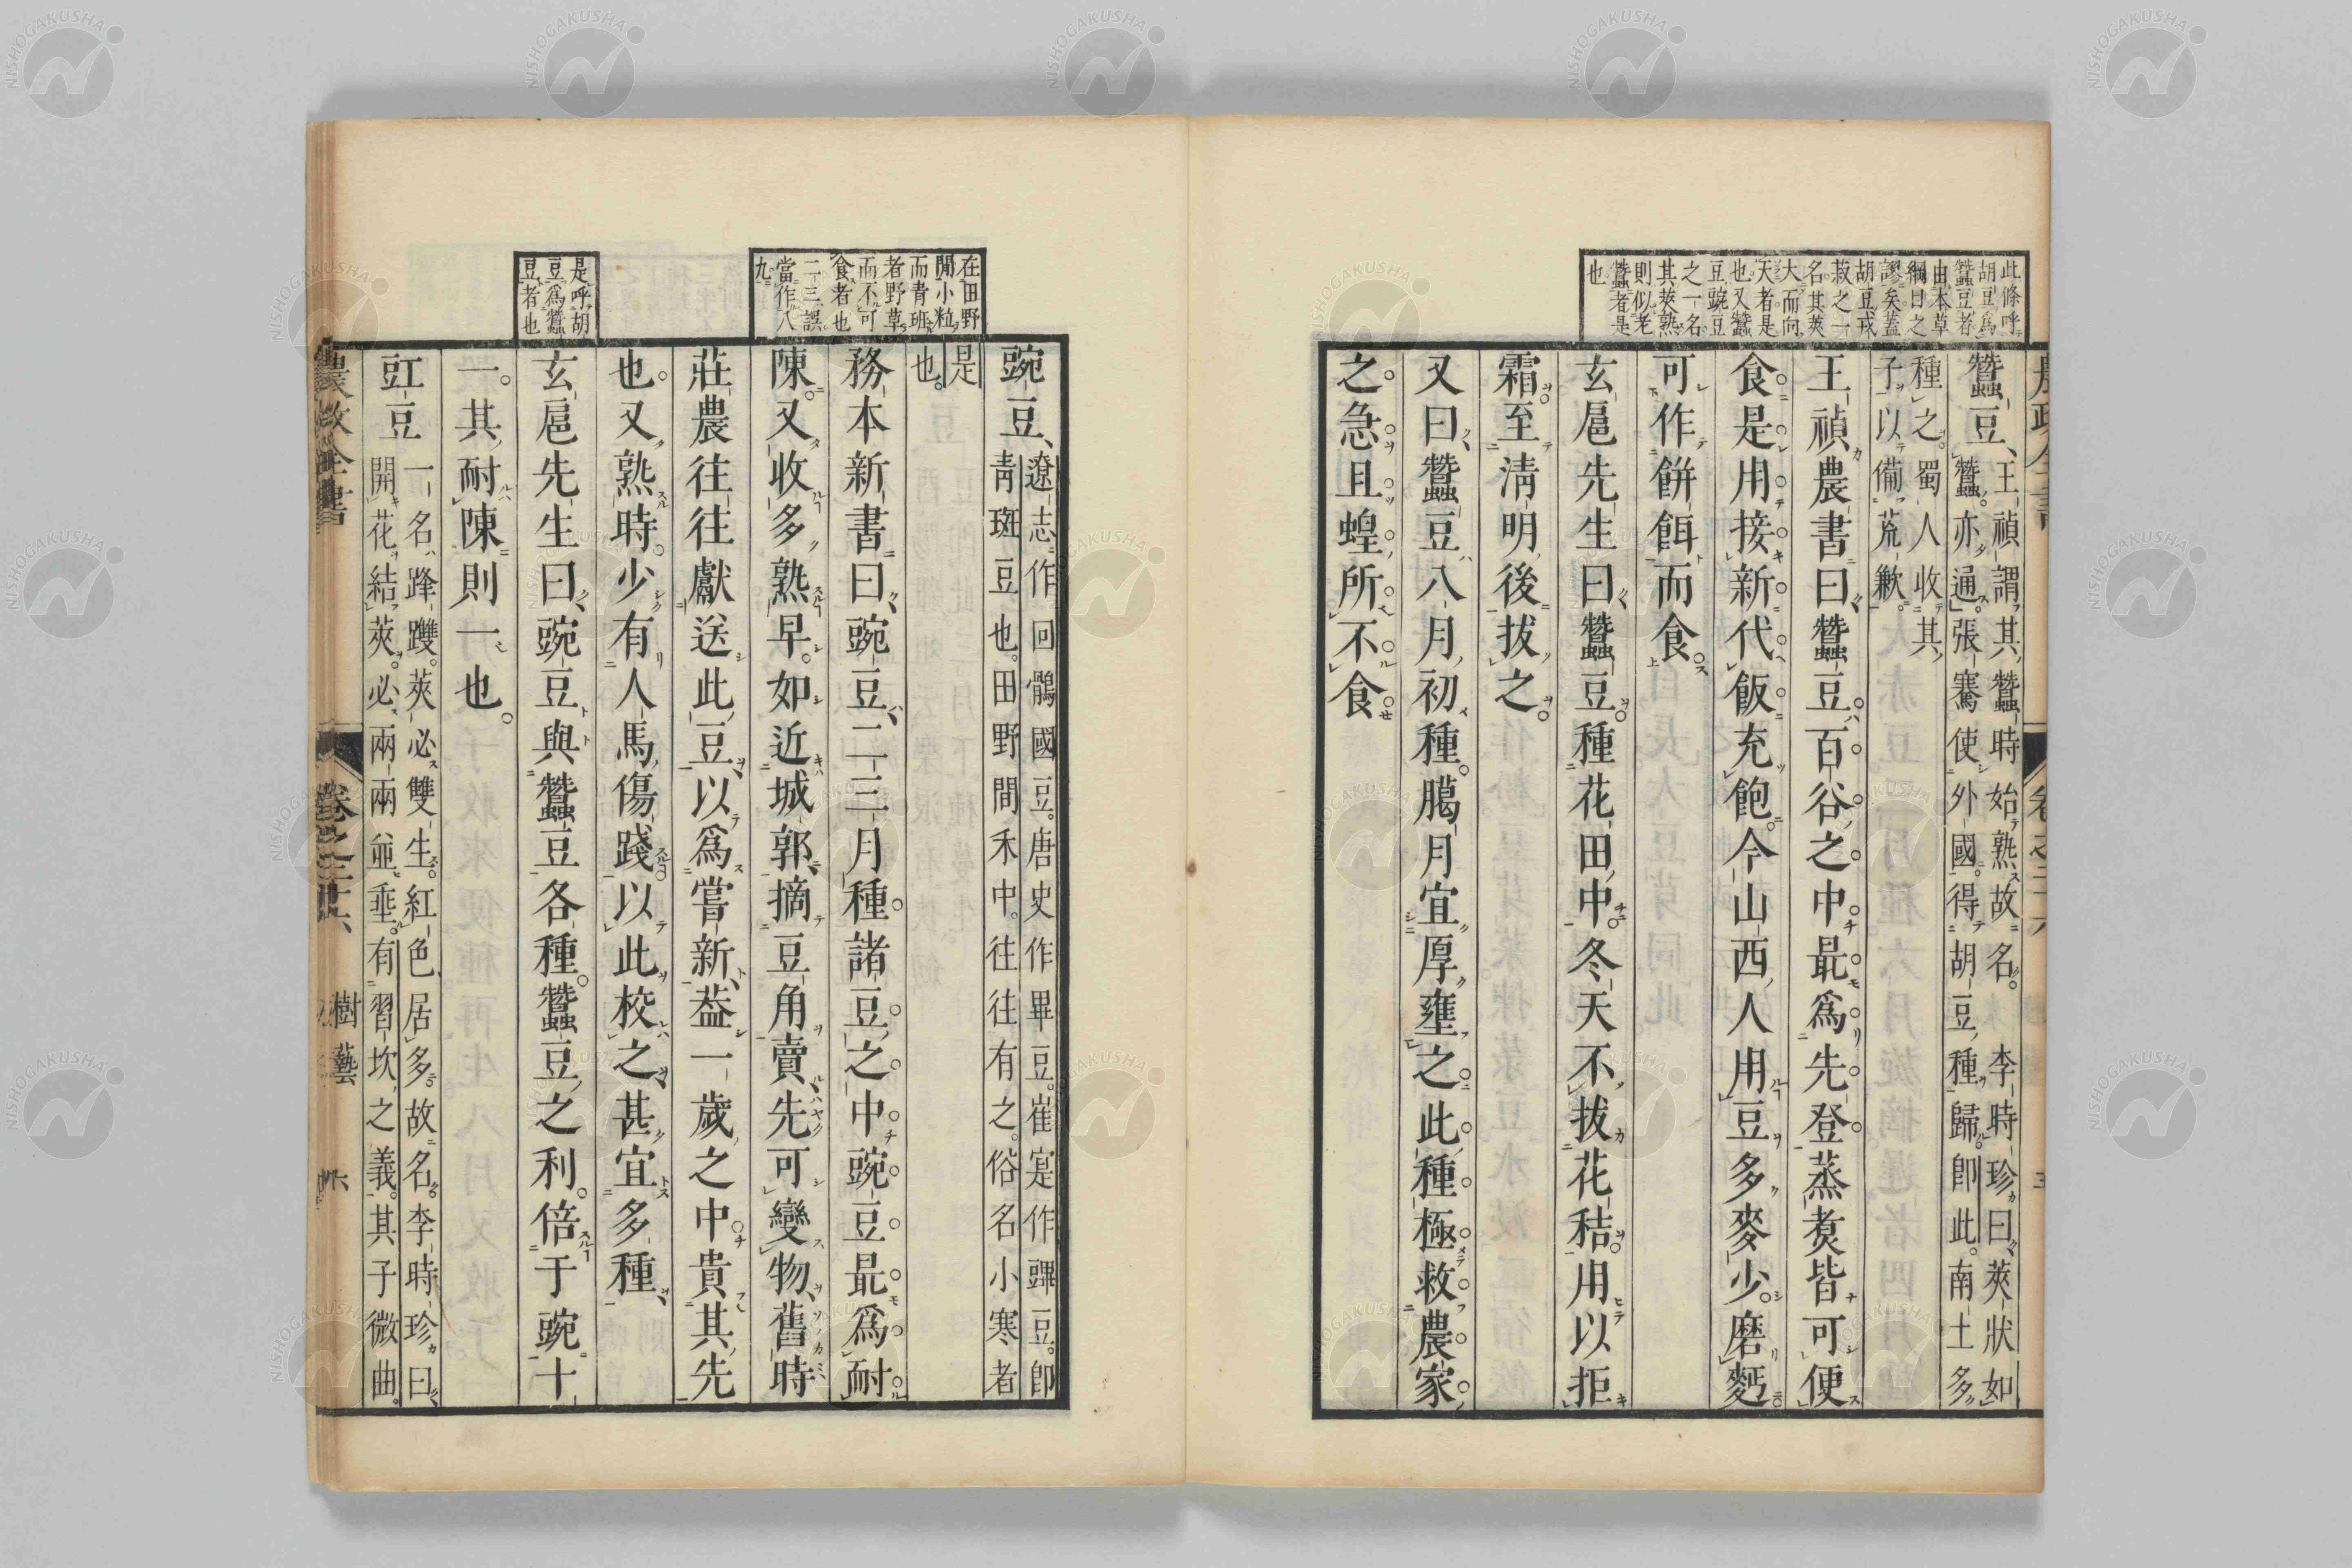 此條呼
胡豆爲
蠶豆者
由本草
綱目之
謬矣蓋
胡豆戎
菽之一
名其莢
大而向
天者是
也又蠶
豆豌豆
之一名
其莢熟
則似老
蠶者是
也
蠶豆、王禎謂其蠶時始熟故名。李時珍曰莢狀如
蠶。亦通。張騫使外國。得胡豆種歸。卽此。南土多
種之。蜀人收其
子以備荒歉。
王禎農書曰蠶豆百谷之中最爲先登蒸煑皆可便
食是用接新代飯充飽。今山西人用豆多麥少。磨麪
可作餅餌而食。
玄扈先生曰蠶豆種花田中。冬天不拔花秸。用以拒
霜。至淸明後拔之。
又曰、蠶豆八月初種。臈月宜厚壅之。此種極救農家
之急。且蝗所不食
在田野
閒小粒
而青班
者野草
而不可
食者也
二三誤
當作八
九
是呼胡
豆爲蠶
豆者也
豌豆、遼志作回鶻國豆。唐史作畢豆。崔寔作䜻豆。卽
靑斑豆也。田野間禾中。往往有之。俗名小寒者
是
也。
務本新書曰、豌豆、二三月種諸豆之中豌豆最爲耐
陳。又收多熟早。如近城郭摘豆角賣先可變物、舊時
莊農往往獻送此豆以爲嘗新、葢一歲之中貴其先
也。又熟時。少有人馬傷踐以此校之、甚宜多種、
玄扈先生曰、豌豆與蠶豆各種。蠶豆之利。倍于豌十
一。其耐陳則一也。
豇豆 一名䜶䝄。莢必雙生。紅色居多。故名。李時珍曰、
開花結莢。必兩兩並垂。有習坎之義。其子微曲。
農政全書 卷之二十六 樹藝 六